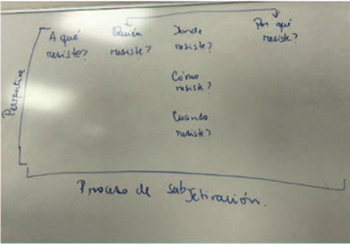 A qué resiste?
Quién resiste?
Dónde resiste?
Por qué resiste?
Cómo resiste?
Cuando resiste?
Perspectiva
Proceso de subjetivación.